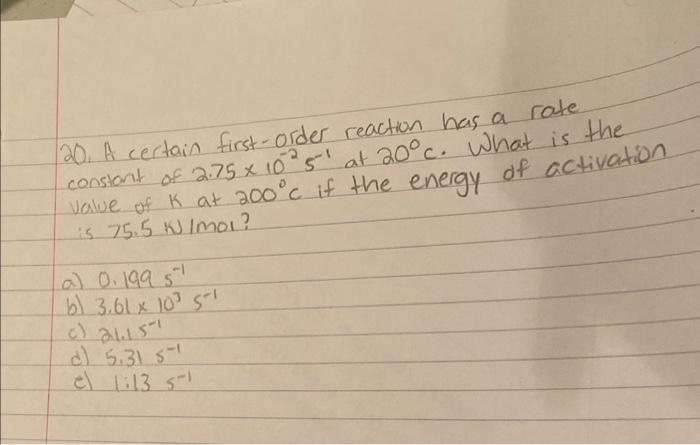 20. A certain first-order reaction has a rate
constant of 2.75 x 10⁻² s⁻¹ at 20°C. What is the
value of K at 200°C if the energy of activation
is 75.5 KJ/mol?
a) 0.199 s⁻¹
b) 3.61 x 10³ s⁻¹
c) 21.1 s⁻¹
d) 5.31 s⁻¹
e) 1.13 s⁻¹